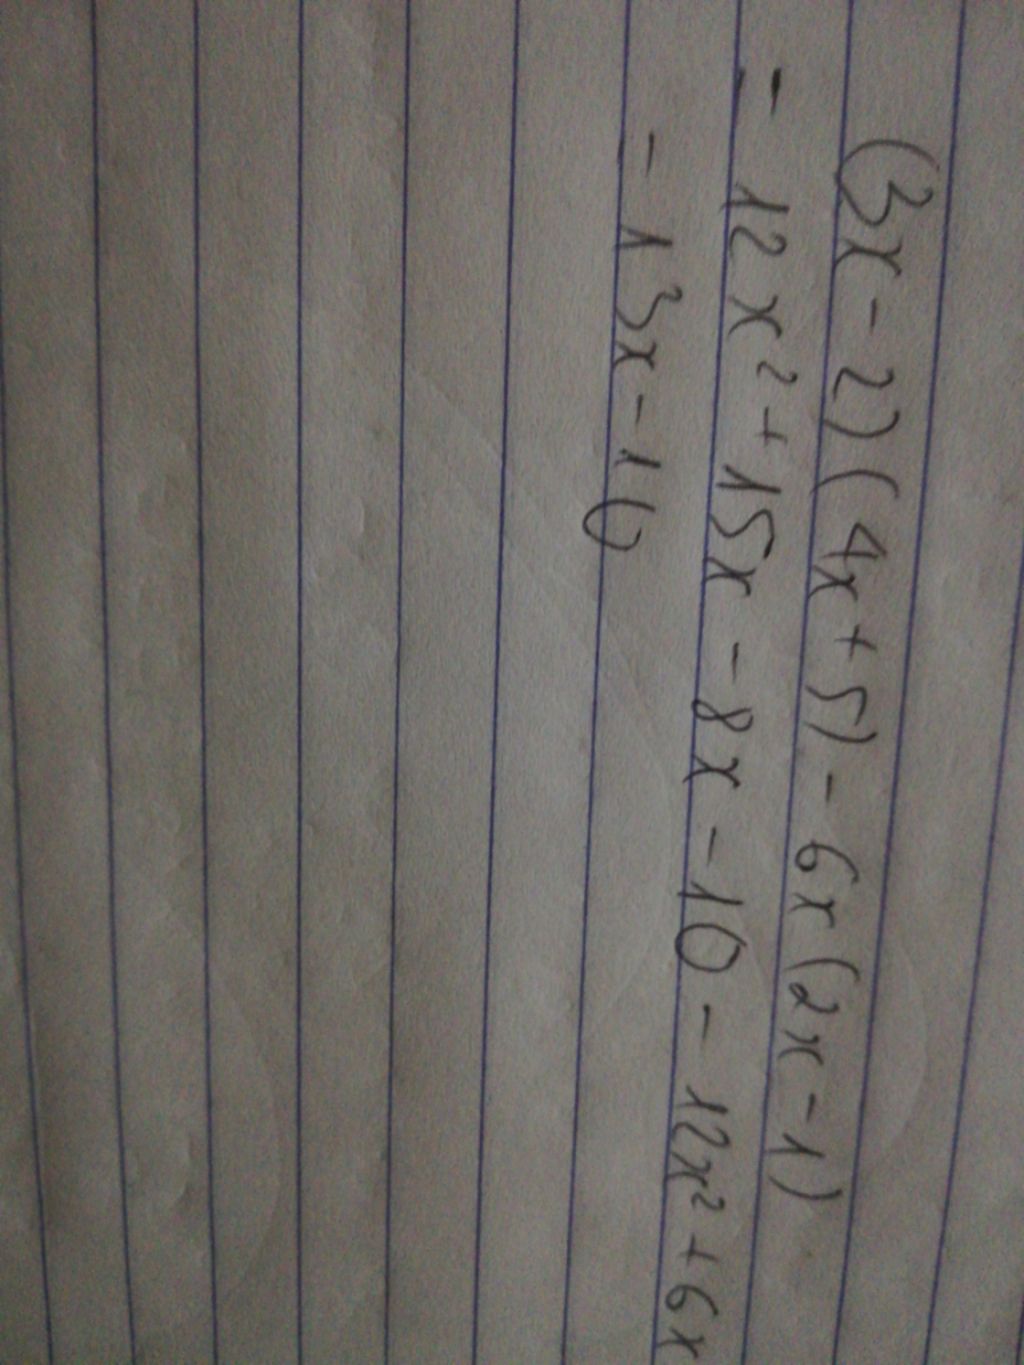 (3x - 2)(4x + 5) - 6x(2x - 1)
= 12x² + 15x - 8x - 10 - 12x² + 6x
= 13x - 10